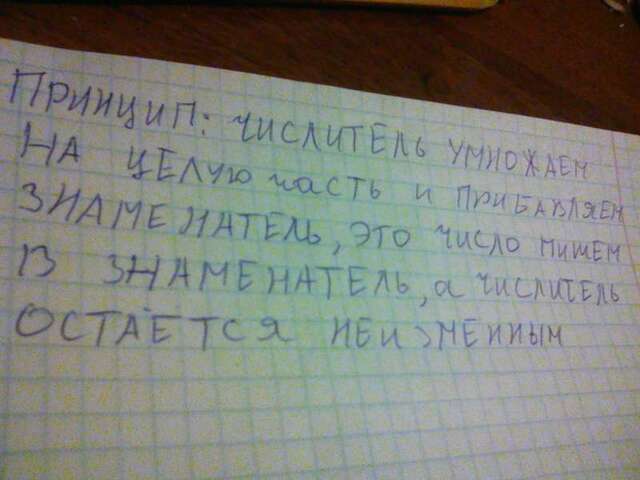 ПРИНЦИП: ЧИСЛИТЕЛЬ УМНОЖАЕМ
НА ЦЕЛУЮ ЧАСТЬ И ПРИБАВЛЯЕМ
ЗНАМЕНАТЕЛЬ, ЭТО ЧИСЛО ПИШЕМ
В ЗНАМЕНАТЕЛЬ, а ЧИСЛИТЕЛЬ
ОСТАЁТСЯ НЕИЗМЕННЫМ